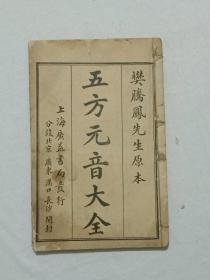 樊騰鳳先生原本
五方元音大全
上海廣益書局發行
分設北京 廣東 漢口 長沙 開封